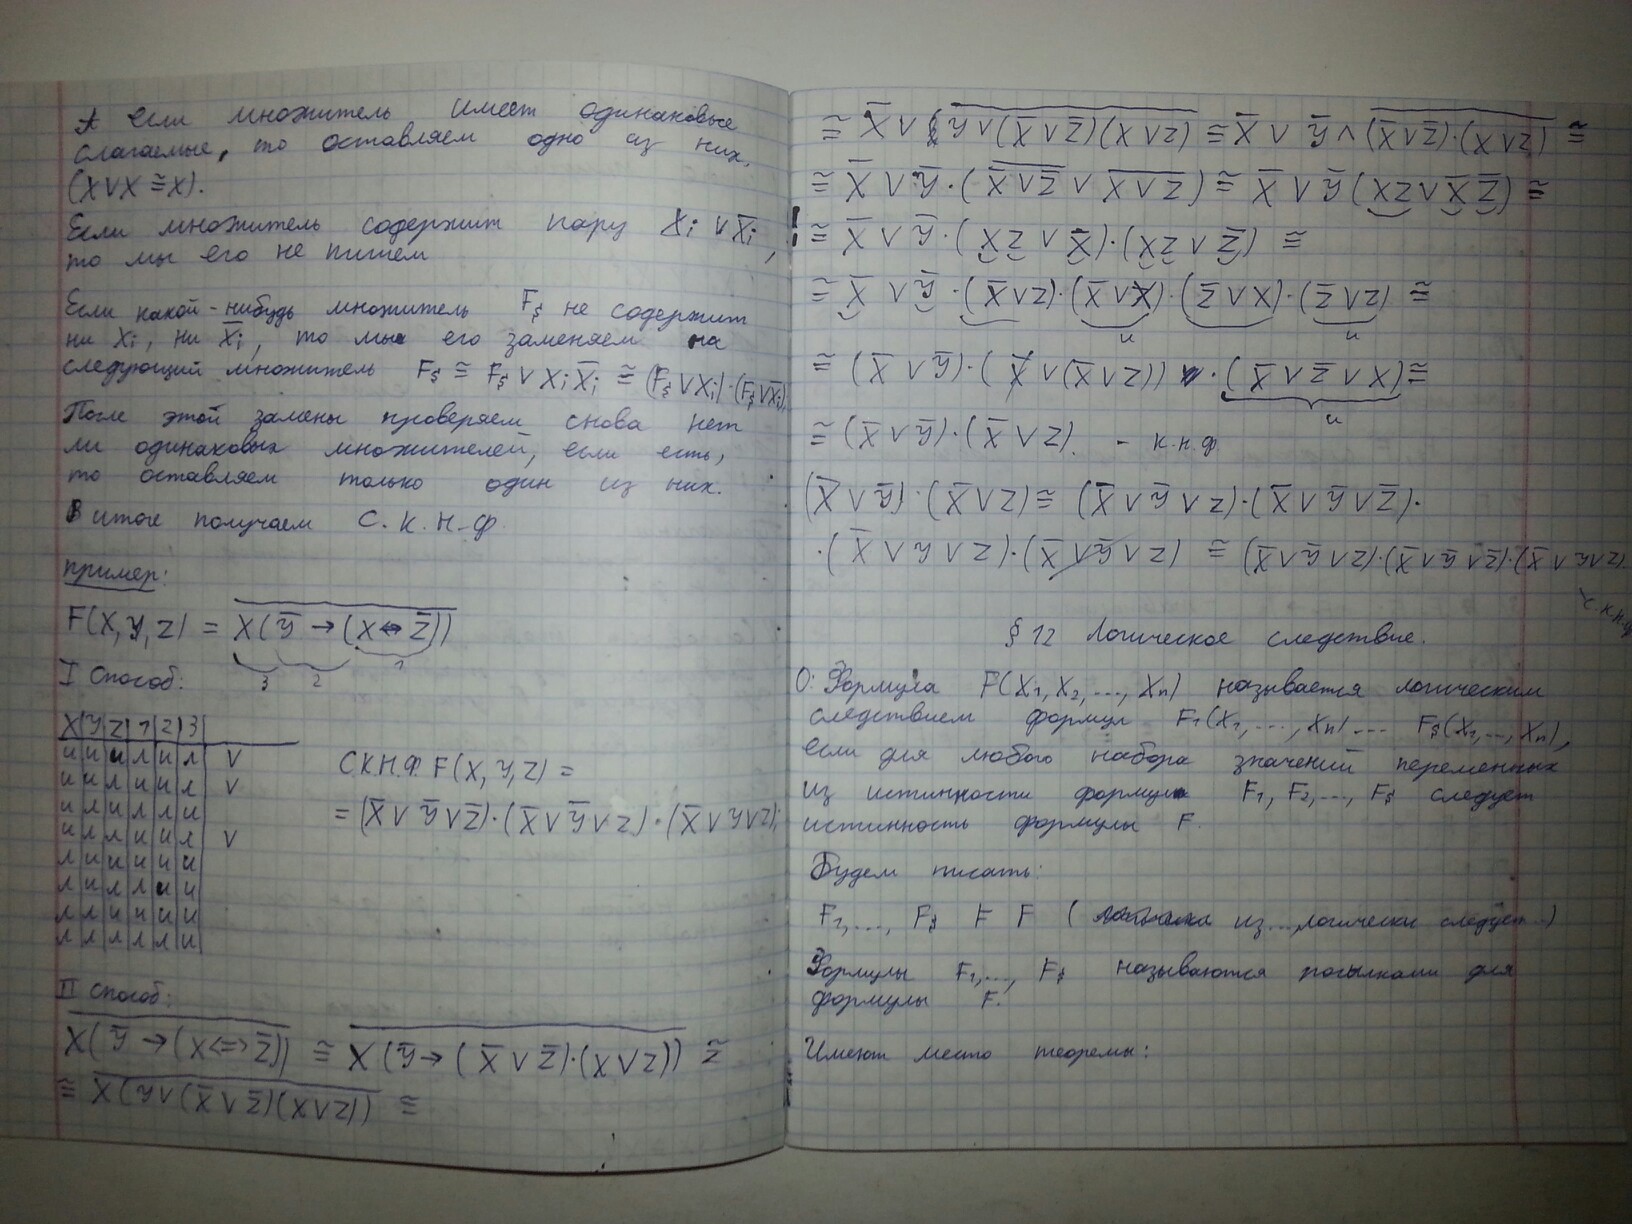 А если множитель имеет одинаковые
слагаемые, то оставляем одно из них.
(X∨X ≅ X).
Если множитель содержит пару Xᵢ ∨ X̅ᵢ,
то мы его не пишем
Если какой-нибудь множитель F_s не содержит
ни Xᵢ, ни X̅ᵢ, то мы его заменяем на
следующий множитель F_s ≅ F_s ∨ Xᵢ X̅ᵢ ≅ (F_s ∨ Xᵢ)·(F_s ∨ X̅ᵢ)
После этой замены проверяем снова нет
ли одинаковых множителей, если есть,
то оставляем только один из них.
В итоге получаем С.К.Н.Ф.
пример:
F(X,Y,Z) = \overline{X(Y̅ → (X ↔ Z̅))}
3 2 1
I способ:
X Y Z 1 2 3
и и и л и л V
и и л и и л V
и л и л л и
и л л и и л V
л и и и и и
л и л л и и
л л и и и и
л л л л л и
С.К.Н.Ф. F(X,Y,Z) =
= (X̅ ∨ Y̅ ∨ Z̅)·(X̅ ∨ Y̅ ∨ Z)·(X̅ ∨ Y ∨ Z);
II способ:
\overline{X(Y̅ → (X <=> Z̅))} ≅ \overline{X(Y̅ → (X̅ ∨ Z̅)·(X ∨ Z))} ≅
≅ \overline{X(Y ∨ (X̅ ∨ Z̅)(X ∨ Z))} ≅
≅ X̅ ∨ \overline{(Y ∨ (X̅ ∨ Z̅)(X ∨ Z)} ≅ X̅ ∨ Y̅ ∧ \overline{(X̅ ∨ Z̅)·(X ∨ Z)} ≅
≅ X̅ ∨ Y̅·(\overline{X̅ ∨ Z̅} ∨ \overline{X ∨ Z}) ≅ X̅ ∨ Y̅(XZ ∨ X̅ Z̅) ≅
! ≅ X̅ ∨ Y̅·(XZ ∨ X̅)·(XZ ∨ Z̅) ≅
≅ X̅ ∨ Y̅·(X̅ ∨ Z)·(X̅ ∨ X)·(Z̅ ∨ X)·(Z̅ ∨ Z) ≅
и и
≅ (X̅ ∨ Y̅)·(X̅ ∨ (X̅ ∨ Z))·(X̅ ∨ Z̅ ∨ X) ≅
и
≅ (X̅ ∨ Y̅)·(X̅ ∨ Z). – к.н.ф.
(X̅ ∨ Y̅)·(X̅ ∨ Z) ≅ (X̅ ∨ Y̅ ∨ Z)·(X̅ ∨ Y̅ ∨ Z̅)·
·(X̅ ∨ Y ∨ Z)·(X̅ ∨ Y̅ ∨ Z) ≅ (X̅ ∨ Y̅ ∨ Z)·(X̅ ∨ Y̅ ∨ Z̅)·(X̅ ∨ Y ∨ Z)
С.К.Н.Ф
§ 12 Логическое следствие.
О: Формула F(X₁, X₂, ..., Xₙ) называется логическим
следствием формул F₁(X₁, ..., Xₙ) ... F_s(X₁, ..., Xₙ),
если для любого набора значений переменных
из истинности формул F₁, F₂, ..., F_s следует
истинность формулы F.
Будем писать:
F₁, ..., F_s ⊨ F ( из ..., логически следует ...)
Формулы F₁, ..., F_s называются посылками для
формулы F.
Имеют место теоремы: